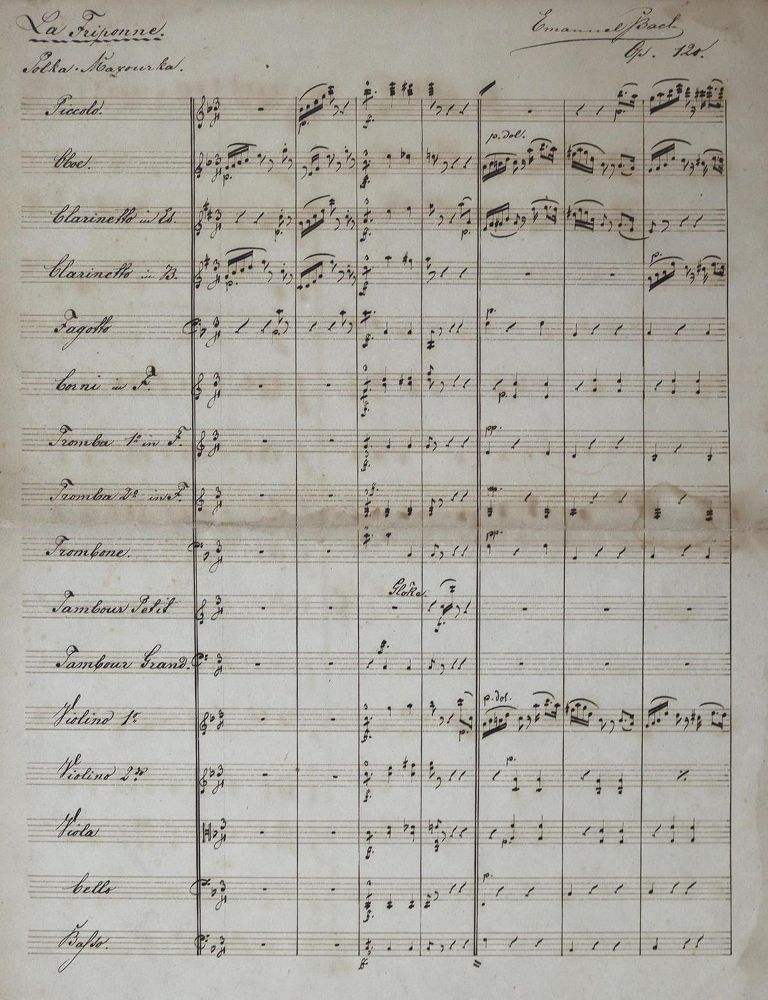 La Friponne. Emanuel Bach
Polka-Mazourka. Op. 120.
Piccolo.
Oboe. p.dol.
Clarinetto in Es.
Clarinetto in B.
Fagotto
Corni in F.
Tromba 1º in F. pp.
Tromba 2º in F. pp.
Trombone. pp.
Tambour Petit Gloke.
Tambour Grand.
Violino 1º p.dol.
Violino 2do p.
Viola
Cello p.
Basso.